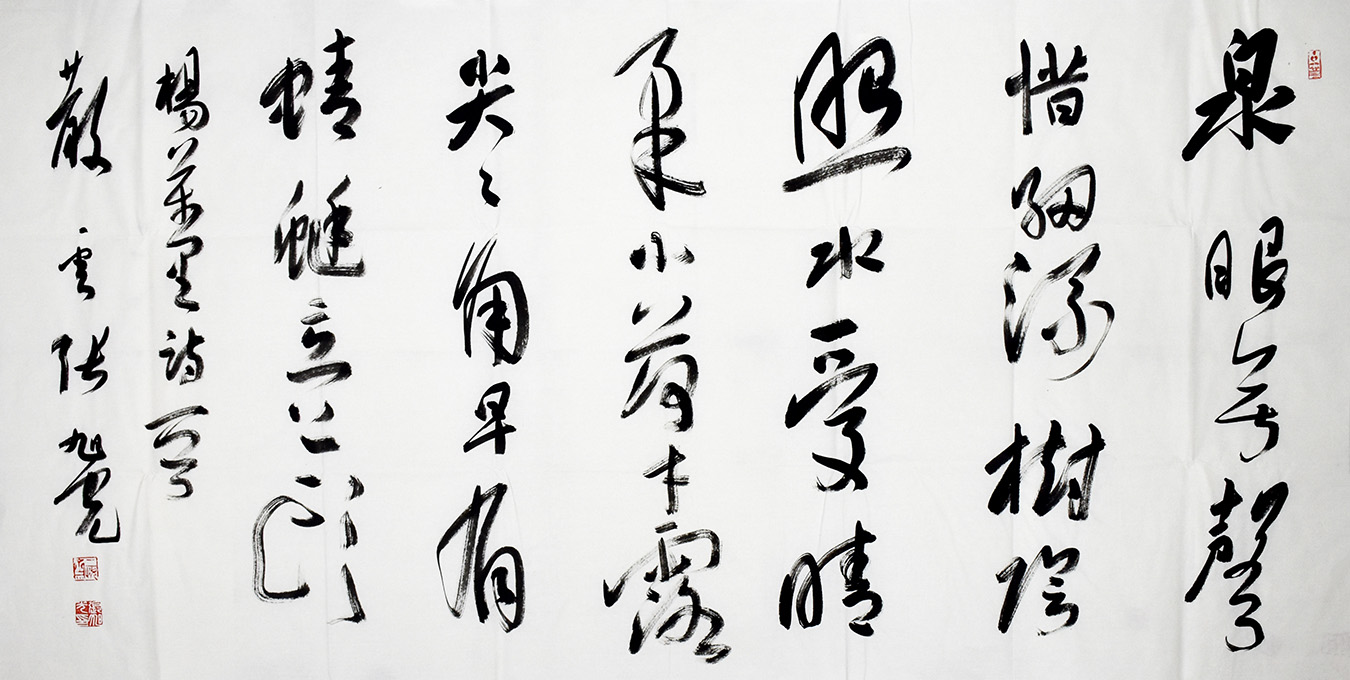 泉眼無聲
惜細流樹陰
照水愛晴
柔小荷才露
尖々角早有
蜻蜓立上頭
楊萬里詩一首
散雲張旭光